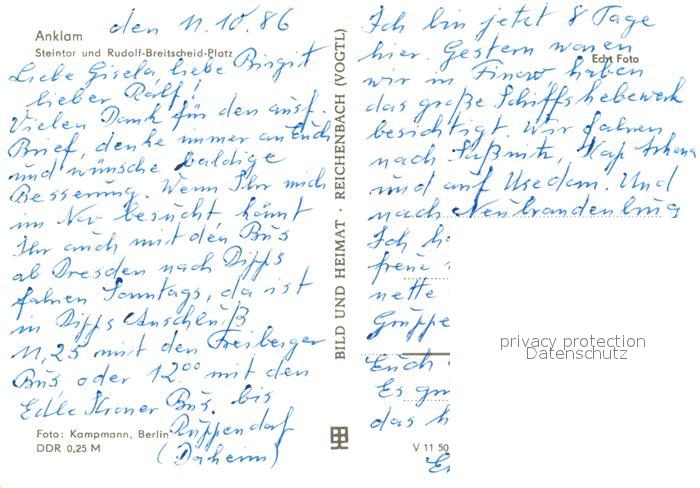 den 11.10.86
Anklam
Steintor und Rudolf-Breitscheid-Platz
Liebe Gisela, liebe Birgit
lieber Ralf!
Vielen Dank für den ausf.
Brief, denke immer an Euch
und wünsche baldige
Besserung. Wenn Ihr mich
im Nov besucht könnt
Ihr auch mit den Bus
ab Dresden nach Dipps
fahren Sonntags, da ist
in Dipps Anschluß
11,25 mit den Freiberger
Bus oder 12.00 mit den
Edle Kroner Bus. bis
Ruppendorf
(Daheim)
Foto: Kampmann, Berlin
DDR 0,25 M
BILD UND HEIMAT · REICHENBACH (VOGTL)
Ich bin jetzt 8 Tage
hier. Gestern waren
Echt Foto
wir in Finow, haben
das große Schiffshebewerk
besichtigt. Wir fahren
nach Saßnitz, Kap Arkona
und auf Usedom. Und
nach Neubrandenburg
Ich h
freue
nette
Gruppe
Euch
Es
das h
V 11 50
privacy protection
Datenschutz